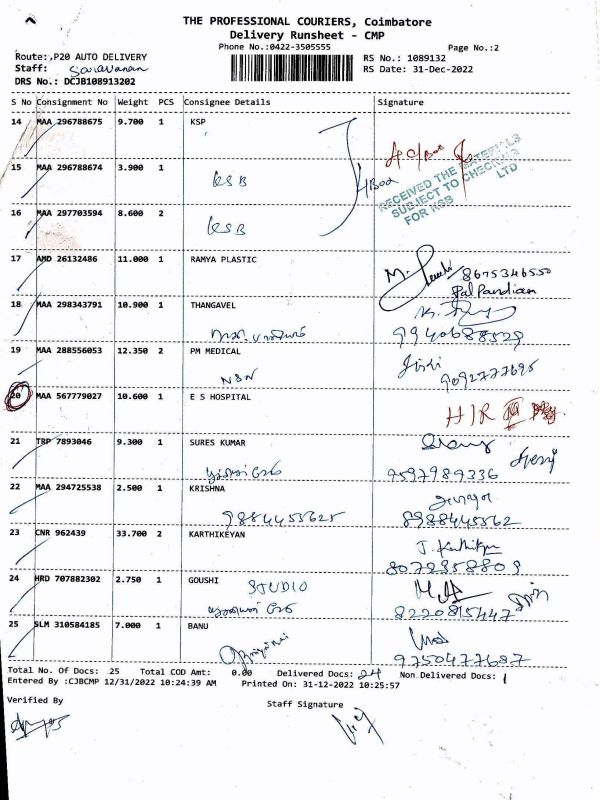 THE PROFESSIONAL COURIERS, Coimbatore
Delivery Runsheet - CMP
Phone No.:0422-3505555
Page No.:2
Route:,P20 AUTO DELIVERY
RS No.: 1089132
Staff: Saravanan
RS Date: 31-Dec-2022
DRS No.: DCJB108913202
S No Consignment No Weight PCS Consignee Details Signature
14 MAA 296788675 9.700 1 KSP
15 MAA 296788674 3.900 1
KSB
RECEIVED THE MATERIALS
SUBJECT TO CHECKING
FOR KSB LTD
16 MAA 297703594 8.600 2
KSB
17 AMD 26132486 11.000 1 RAMYA PLASTIC
8675346550
Pal Pandian
18 MAA 298343791 10.900 1 THANGAVEL
9940688529
19 MAA 288556053 12.350 2 PM MEDICAL
NSN
9092777695
20 MAA 567779027 10.600 1 E S HOSPITAL
21 TRP 7893046 9.300 1 SURES KUMAR
9597989336
22 MAA 294725538 2.500 1 KRISHNA
9884455625
8988445562
23 CNR 962439 33.700 2 KARTHIKEYAN
8072358809
24 HRD 707882302 2.750 1 GOUSHI STUDIO
8220815447
25 SLM 310584185 7.000 1 BANU
9750477687
Total No. Of Docs: 25 Total COD Amt: 0.00 Delivered Docs: 24 Non Delivered Docs: 1
Entered By :CJBCMP 12/31/2022 10:24:39 AM Printed On: 31-12-2022 10:25:57
Verified By
Staff Signature